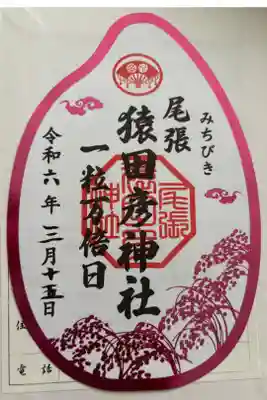 みちびき
尾張
猿田彦神社
一粒万倍日
令和六年三月十五日
住
電話